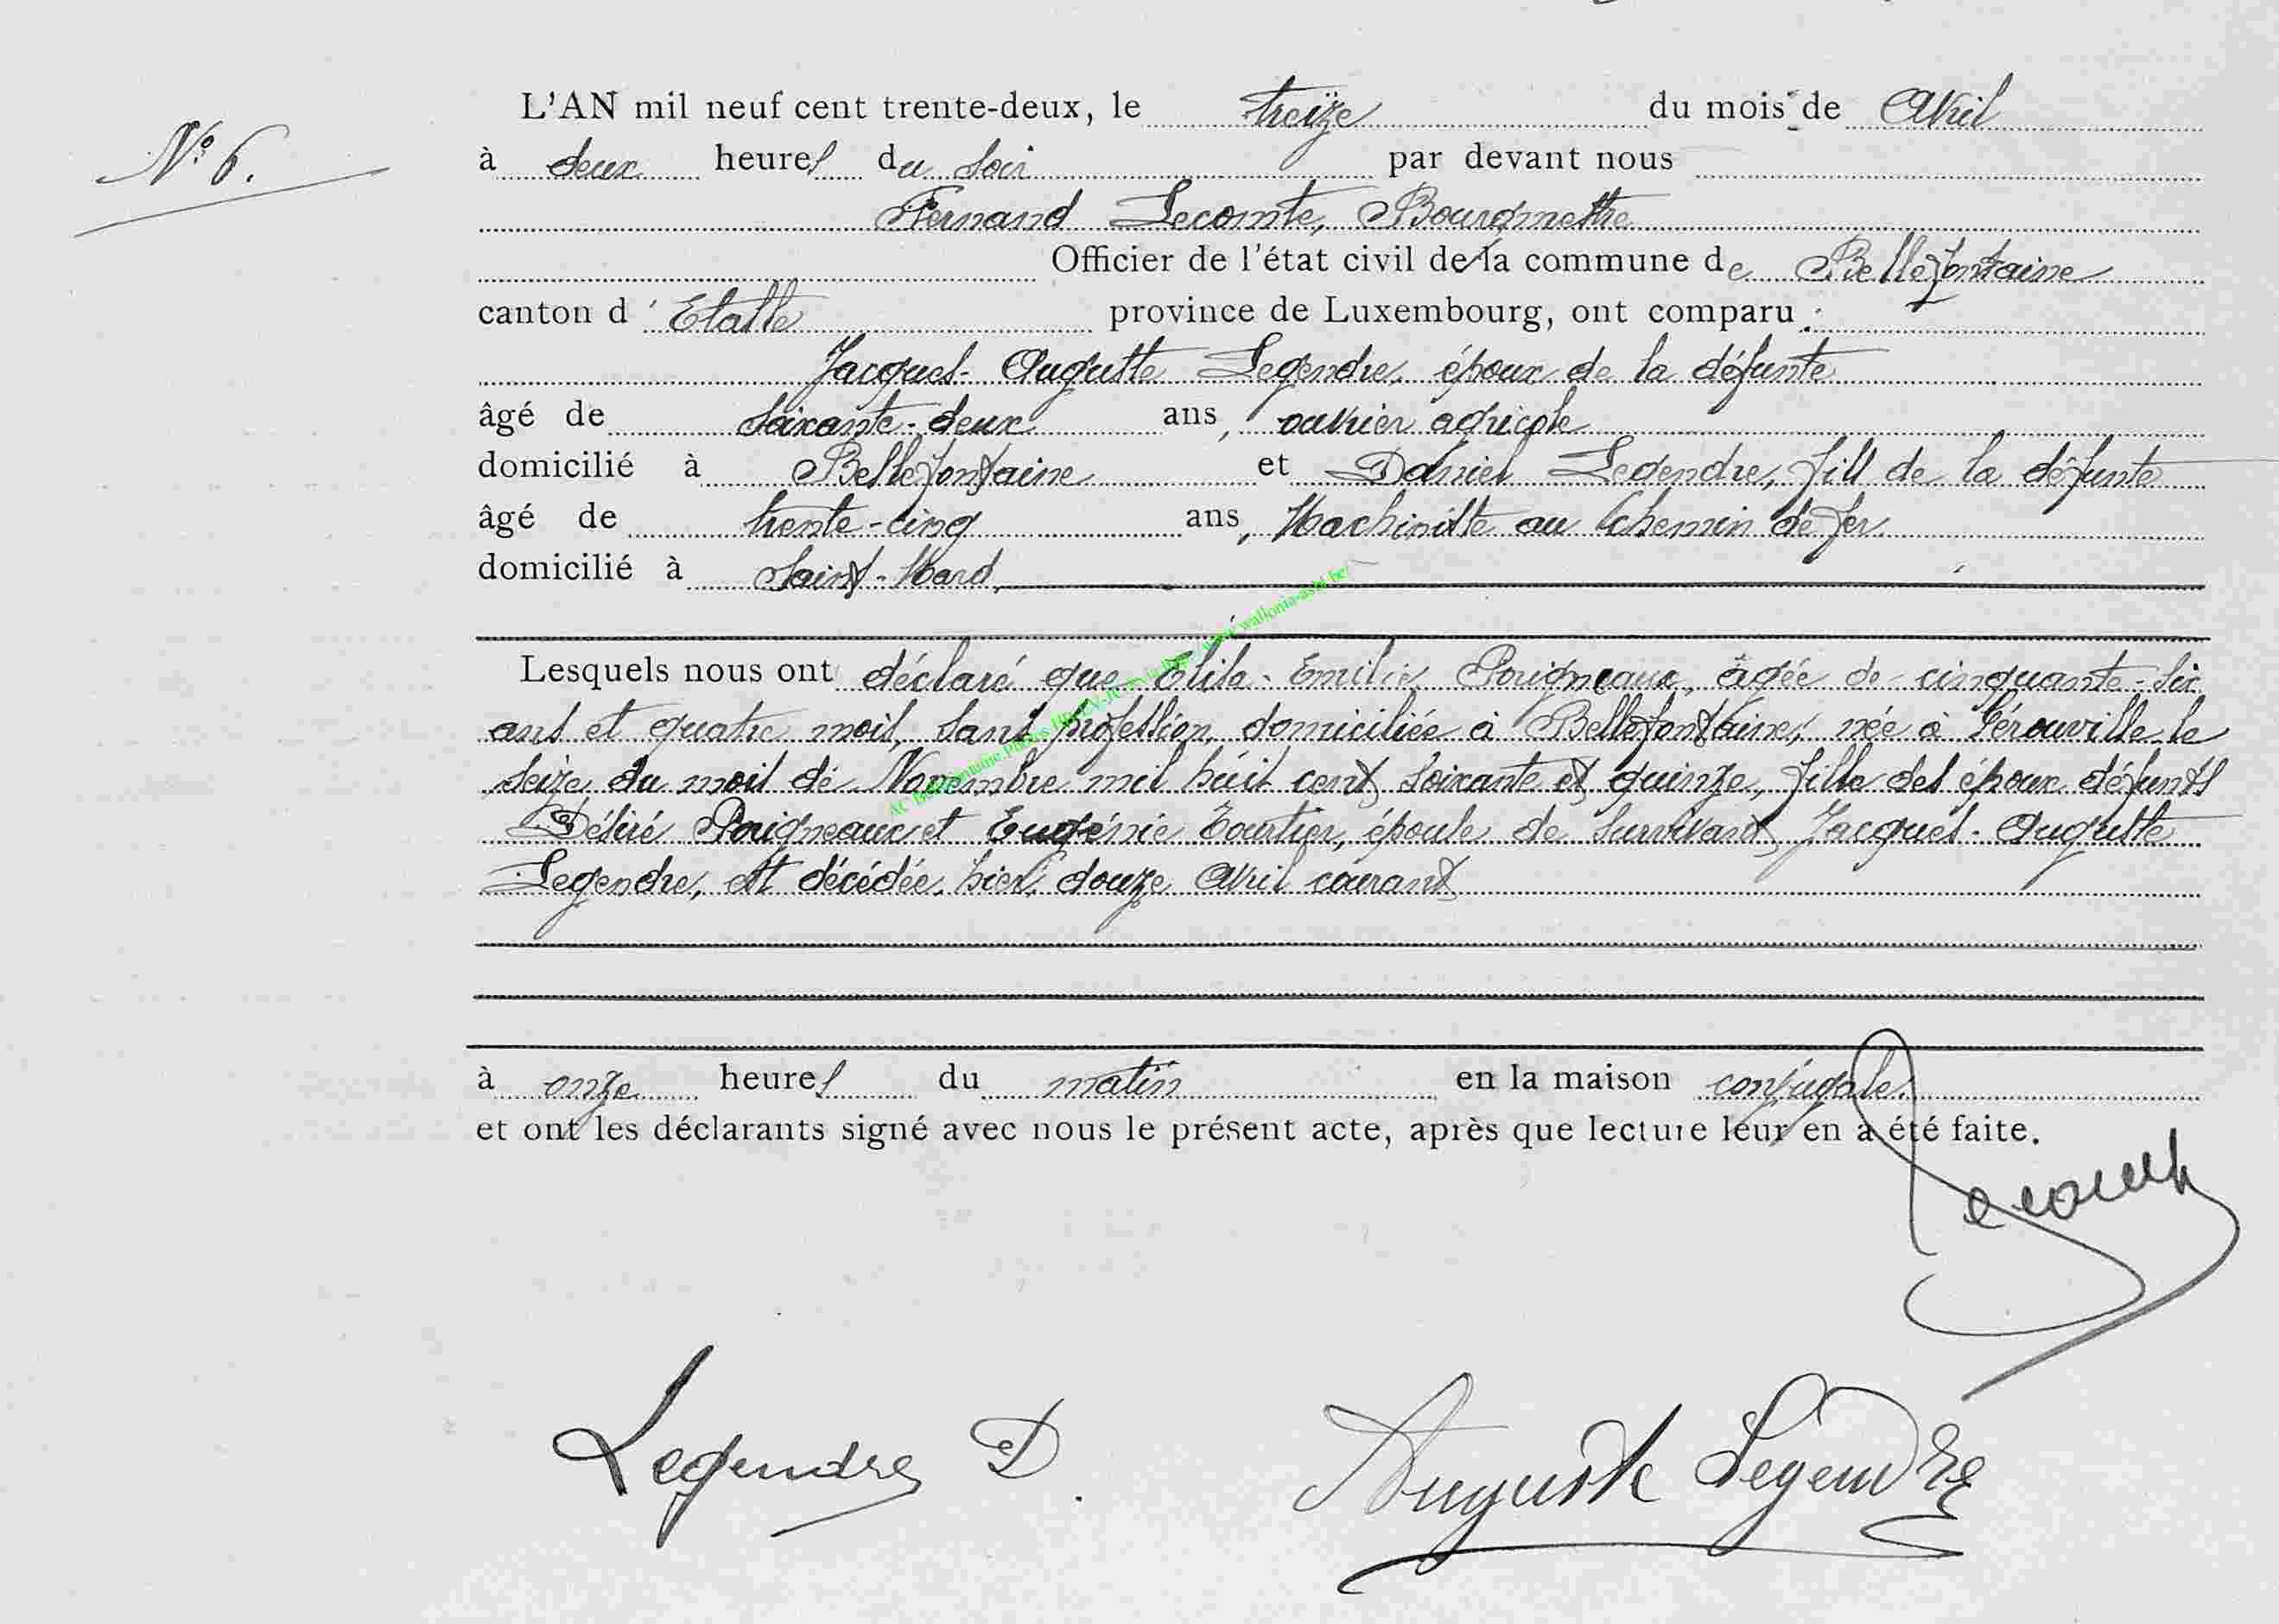 N° 6.
L'AN mil neuf cent trente-deux, le treize du mois de Avril
à deux heures du soir par devant nous
Fernand Lecomte, Bourgmestre
Officier de l'état civil de la commune de Bellefontaine
canton d'Etalle province de Luxembourg, ont comparu :
Jacques-Auguste Legendre, époux de la défunte
âgé de soixante-deux ans, ouvrier agricole
domicilié à Bellefontaine et Daniel Legendre, fils de la défunte
âgé de trente-cinq ans, Machiniste au Chemin de fer
domicilié à Saint-Mard,
Lesquels nous ont déclaré que Elisa-Emilie Poigneaux, âgée de cinquante-six
ans et quatre mois, sans profession, domiciliée à Bellefontaine, née à Gérouville le
seize du mois de Novembre mil huit cent soixante et quinze, fille des époux défunts
Désiré Poigneaux et Eugénie Tourtier, épouse de survivant Jacques-Auguste
Legendre, est décédée hier, douze Avril courant
à onze heures du matin en la maison conjugale.
et ont les déclarants signé avec nous le présent acte, après que lecture leur en a été faite.
Lecomte
Legendre D. Auguste Legendre